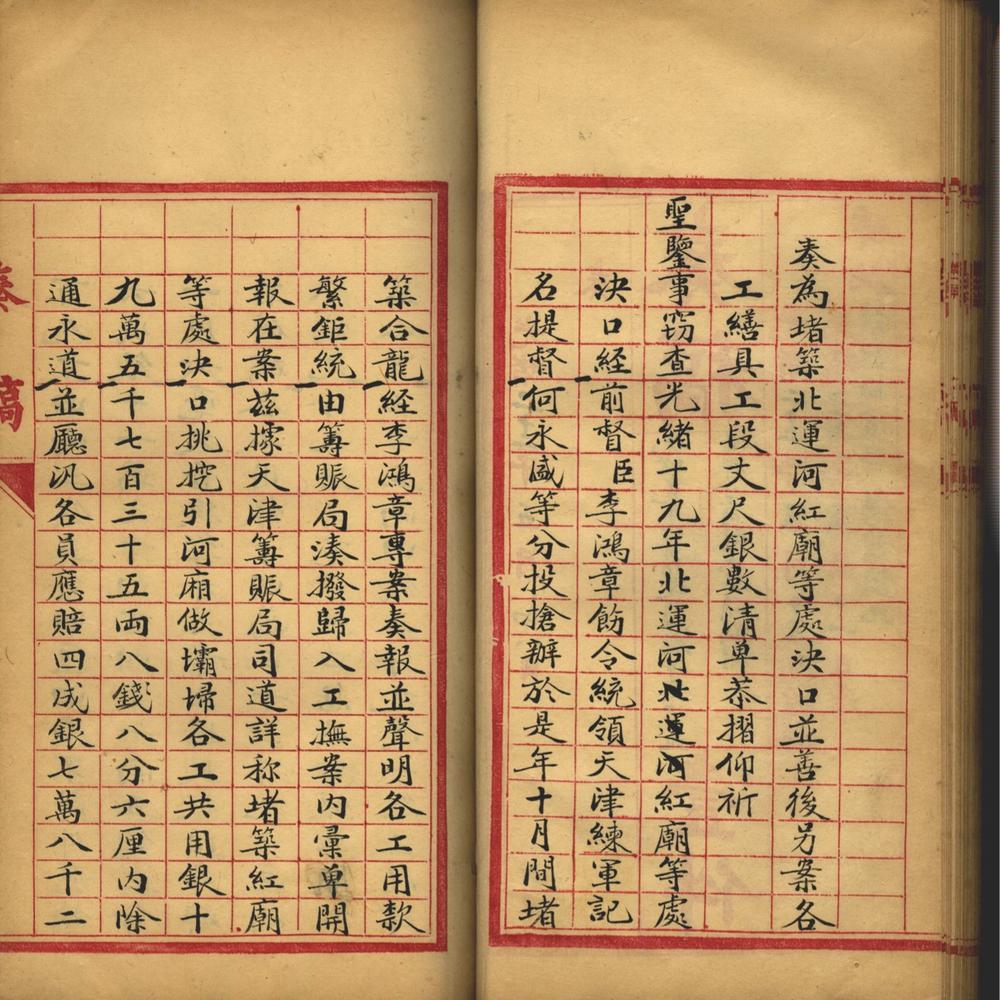 奏為堵築北運河紅廟等處決口並善後另案各
工繕具工段丈尺銀數清單恭摺仰祈
聖鑒事竊查光緒十九年北運河北運河紅廟等處
決口經前督臣李鴻章飭令統領天津練軍記
名提督何永盛等分投搶辦於是年十月間堵
築合龍經李鴻章專案奏報並聲明各工用款
繁鉅統由籌賑局湊撥歸入工撫案內彙單開
報在案茲據天津籌賑局司道詳称堵築紅廟
等處決口挑挖引河廂做壩埽各工共用銀十
九萬五千七百三十五兩八錢八分六厘內除
通永道並廳汛各員應賠四成銀七萬八千二
奏稿